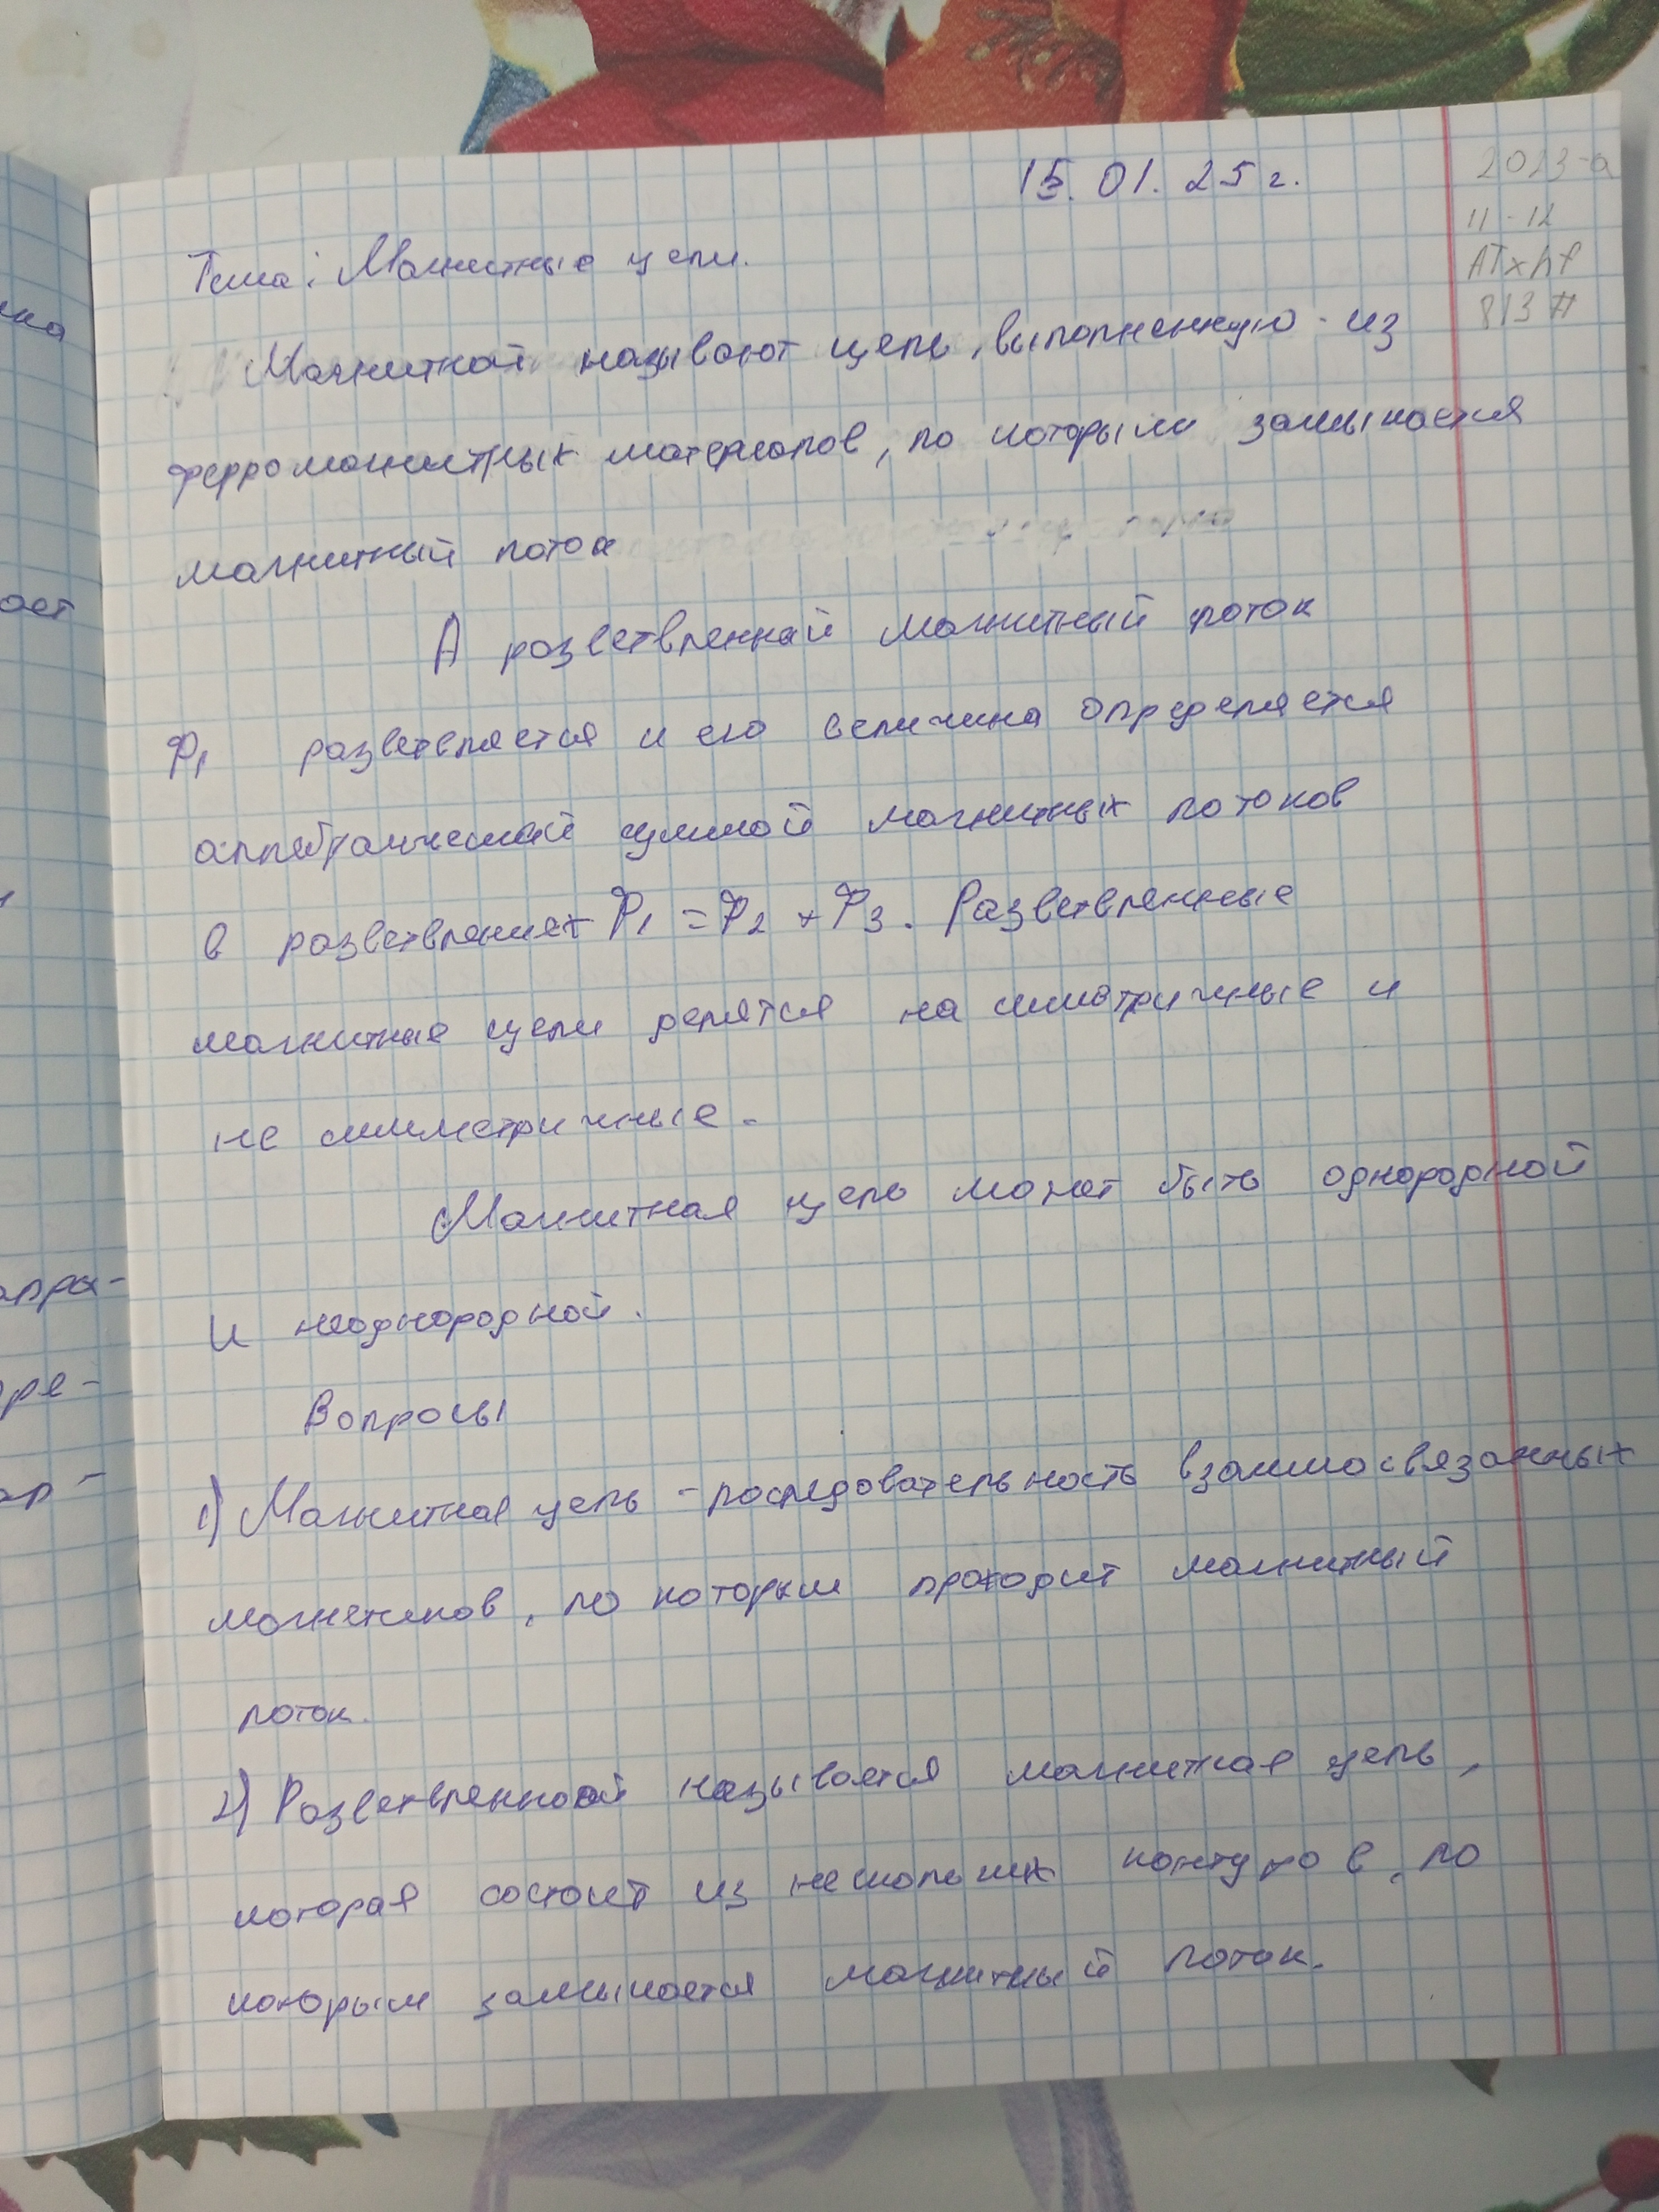 15.01.25г.
2023-а
11-12
813
Тема: Магнитные цепи.
Магнитной называют цепь, выполненную из
ферромагнитных материалов, по которым замыкается
магнитный поток
А разветвленной магнитный поток
Ф1 разветвляется и его величина определяется
алгебраической суммой магнитных потоков
в разветвлениях Ф1 = Ф2 + Ф3. Разветвленные
магнитные цепи делятся на симетричные и
не симметричные.
Магнитная цепь может быть однородной
и неоднородной.
Вопросы
1) Магнитная цепь - последовательность взаимосвязанных
магнетиков, по которым проходит магнитный
поток.
2) Разветвленной называется магнитная цепь,
которая состоит из нескольких контуров, по
которым замыкается магнитный поток.
ика
ает
апра-
ре-
ар-